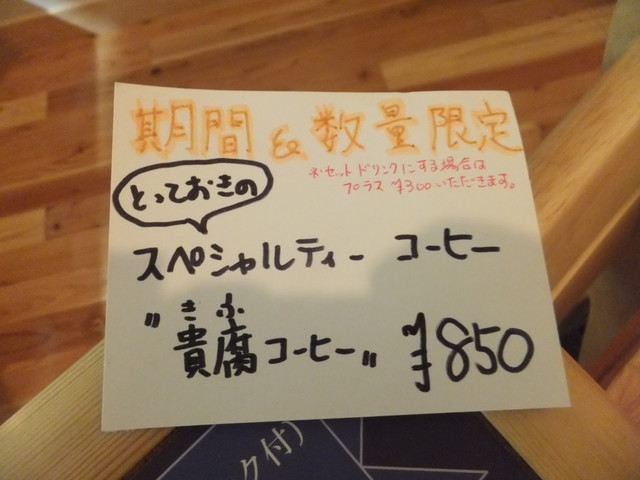 期間&数量限定
※セットドリンクにする場合は
プラス ¥300いただきます。
とっておきの
スペシャルティー コーヒー
きふ
"貴腐コーヒー" ¥850
ク付)